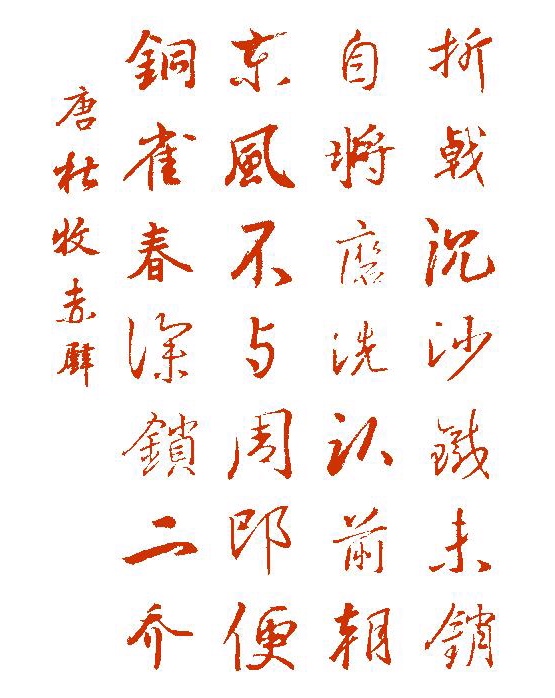 折戟沉沙鐵未銷
自將磨洗认前朝
东風不与周郎便
銅雀春深鎖二乔
唐杜牧赤壁